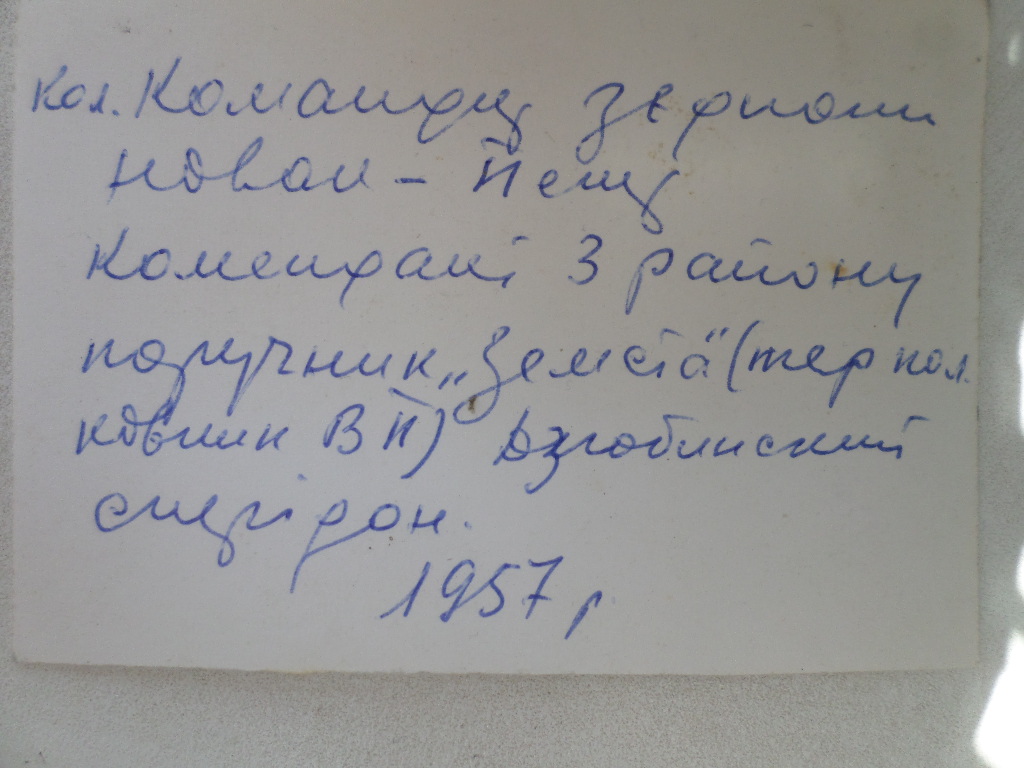 Кол. Командир
новак - П
Комендант 3 району
поручник „Земста" (тер пол.
ковник ВП) Дзюбинский
спірідон.
1957 р